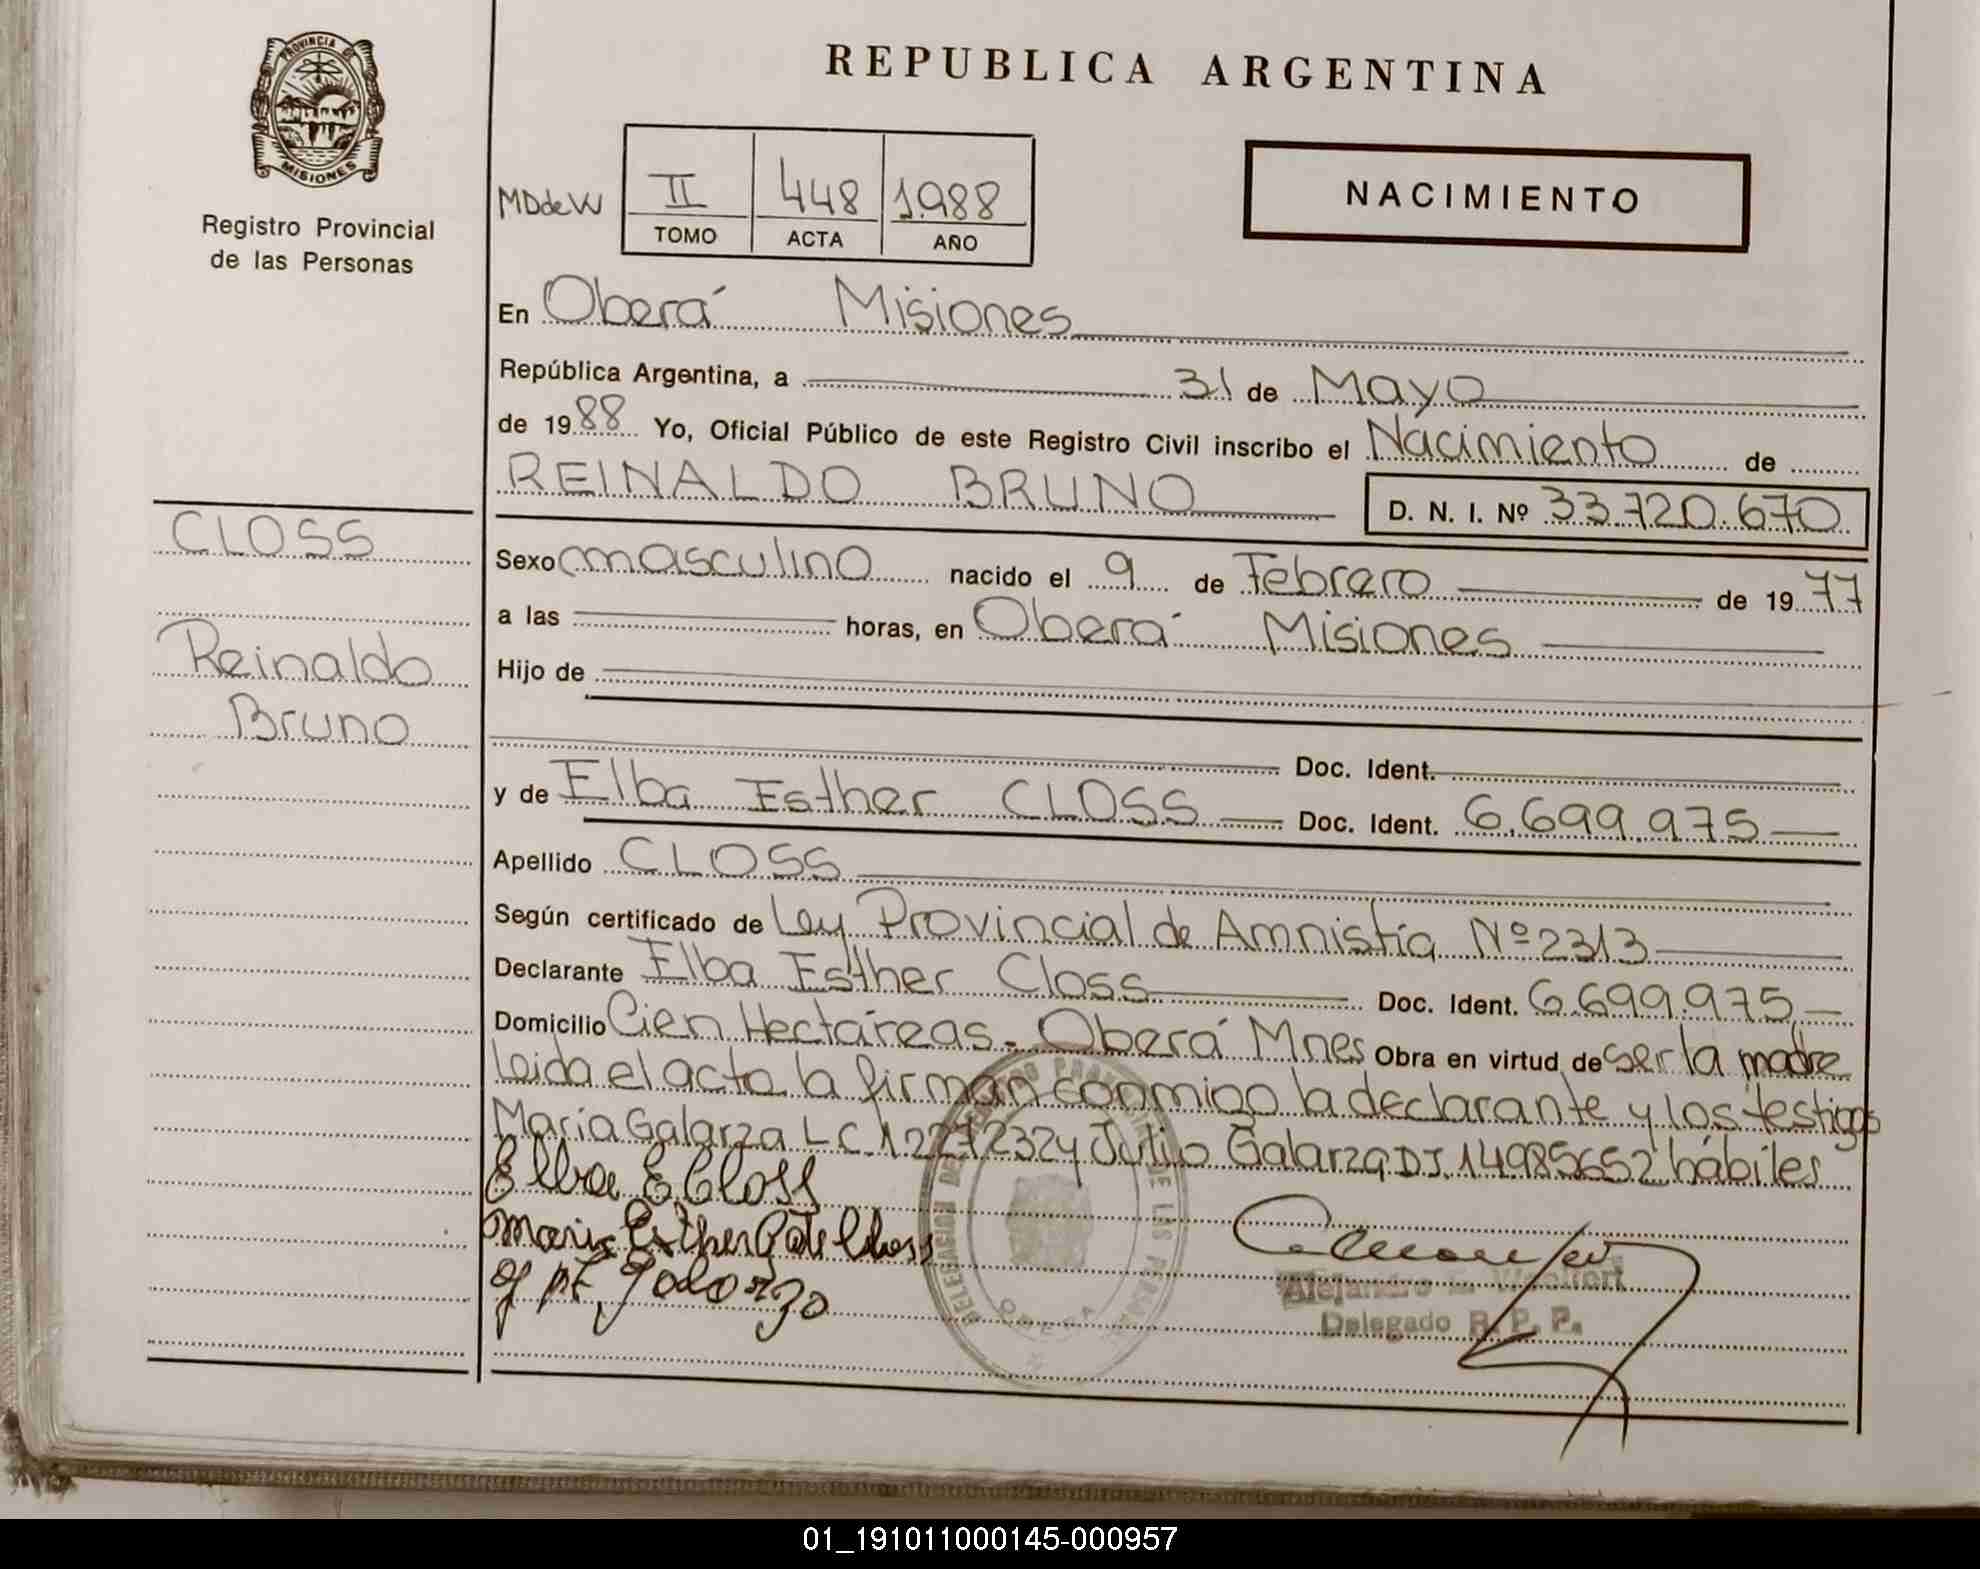 PROVINCIA DE
MISIONES
Registro Provincial
de las Personas
REPUBLICA ARGENTINA
MDdeW
II 448 1988
TOMO ACTA AÑO
NACIMIENTO
En Oberá Misiones
República Argentina, a 31 de Mayo
de 1988 Yo, Oficial Público de este Registro Civil inscribo el Nacimiento de
REINALDO BRUNO
D. N. I. Nº 33.720.670
CLOSS
Reinaldo
Bruno
Sexo masculino nacido el 9 de Febrero de 1977
a las horas, en Oberá Misiones
Hijo de
Doc. Ident.
y de Elba Esther CLOSS Doc. Ident. 6.699.975
Apellido CLOSS
Según certificado de Ley Provincial de Amnistía Nº 2313
Declarante Elba Esther Closs Doc. Ident. 6.699.975
Domicilio Cien Hectáreas - Oberá Mnes Obra en virtud de ser la madre
Leida el acta la firman conmigo la declarante y los testigos
Maria Galarza L C 12272324 Julio Galarza DI. 14985652 hábiles
Elba E Closs
Maria Esther
DELEGACION DE LAS
OBERA
Alejandro
Delegado R. P. P.
01_191011000145-000957